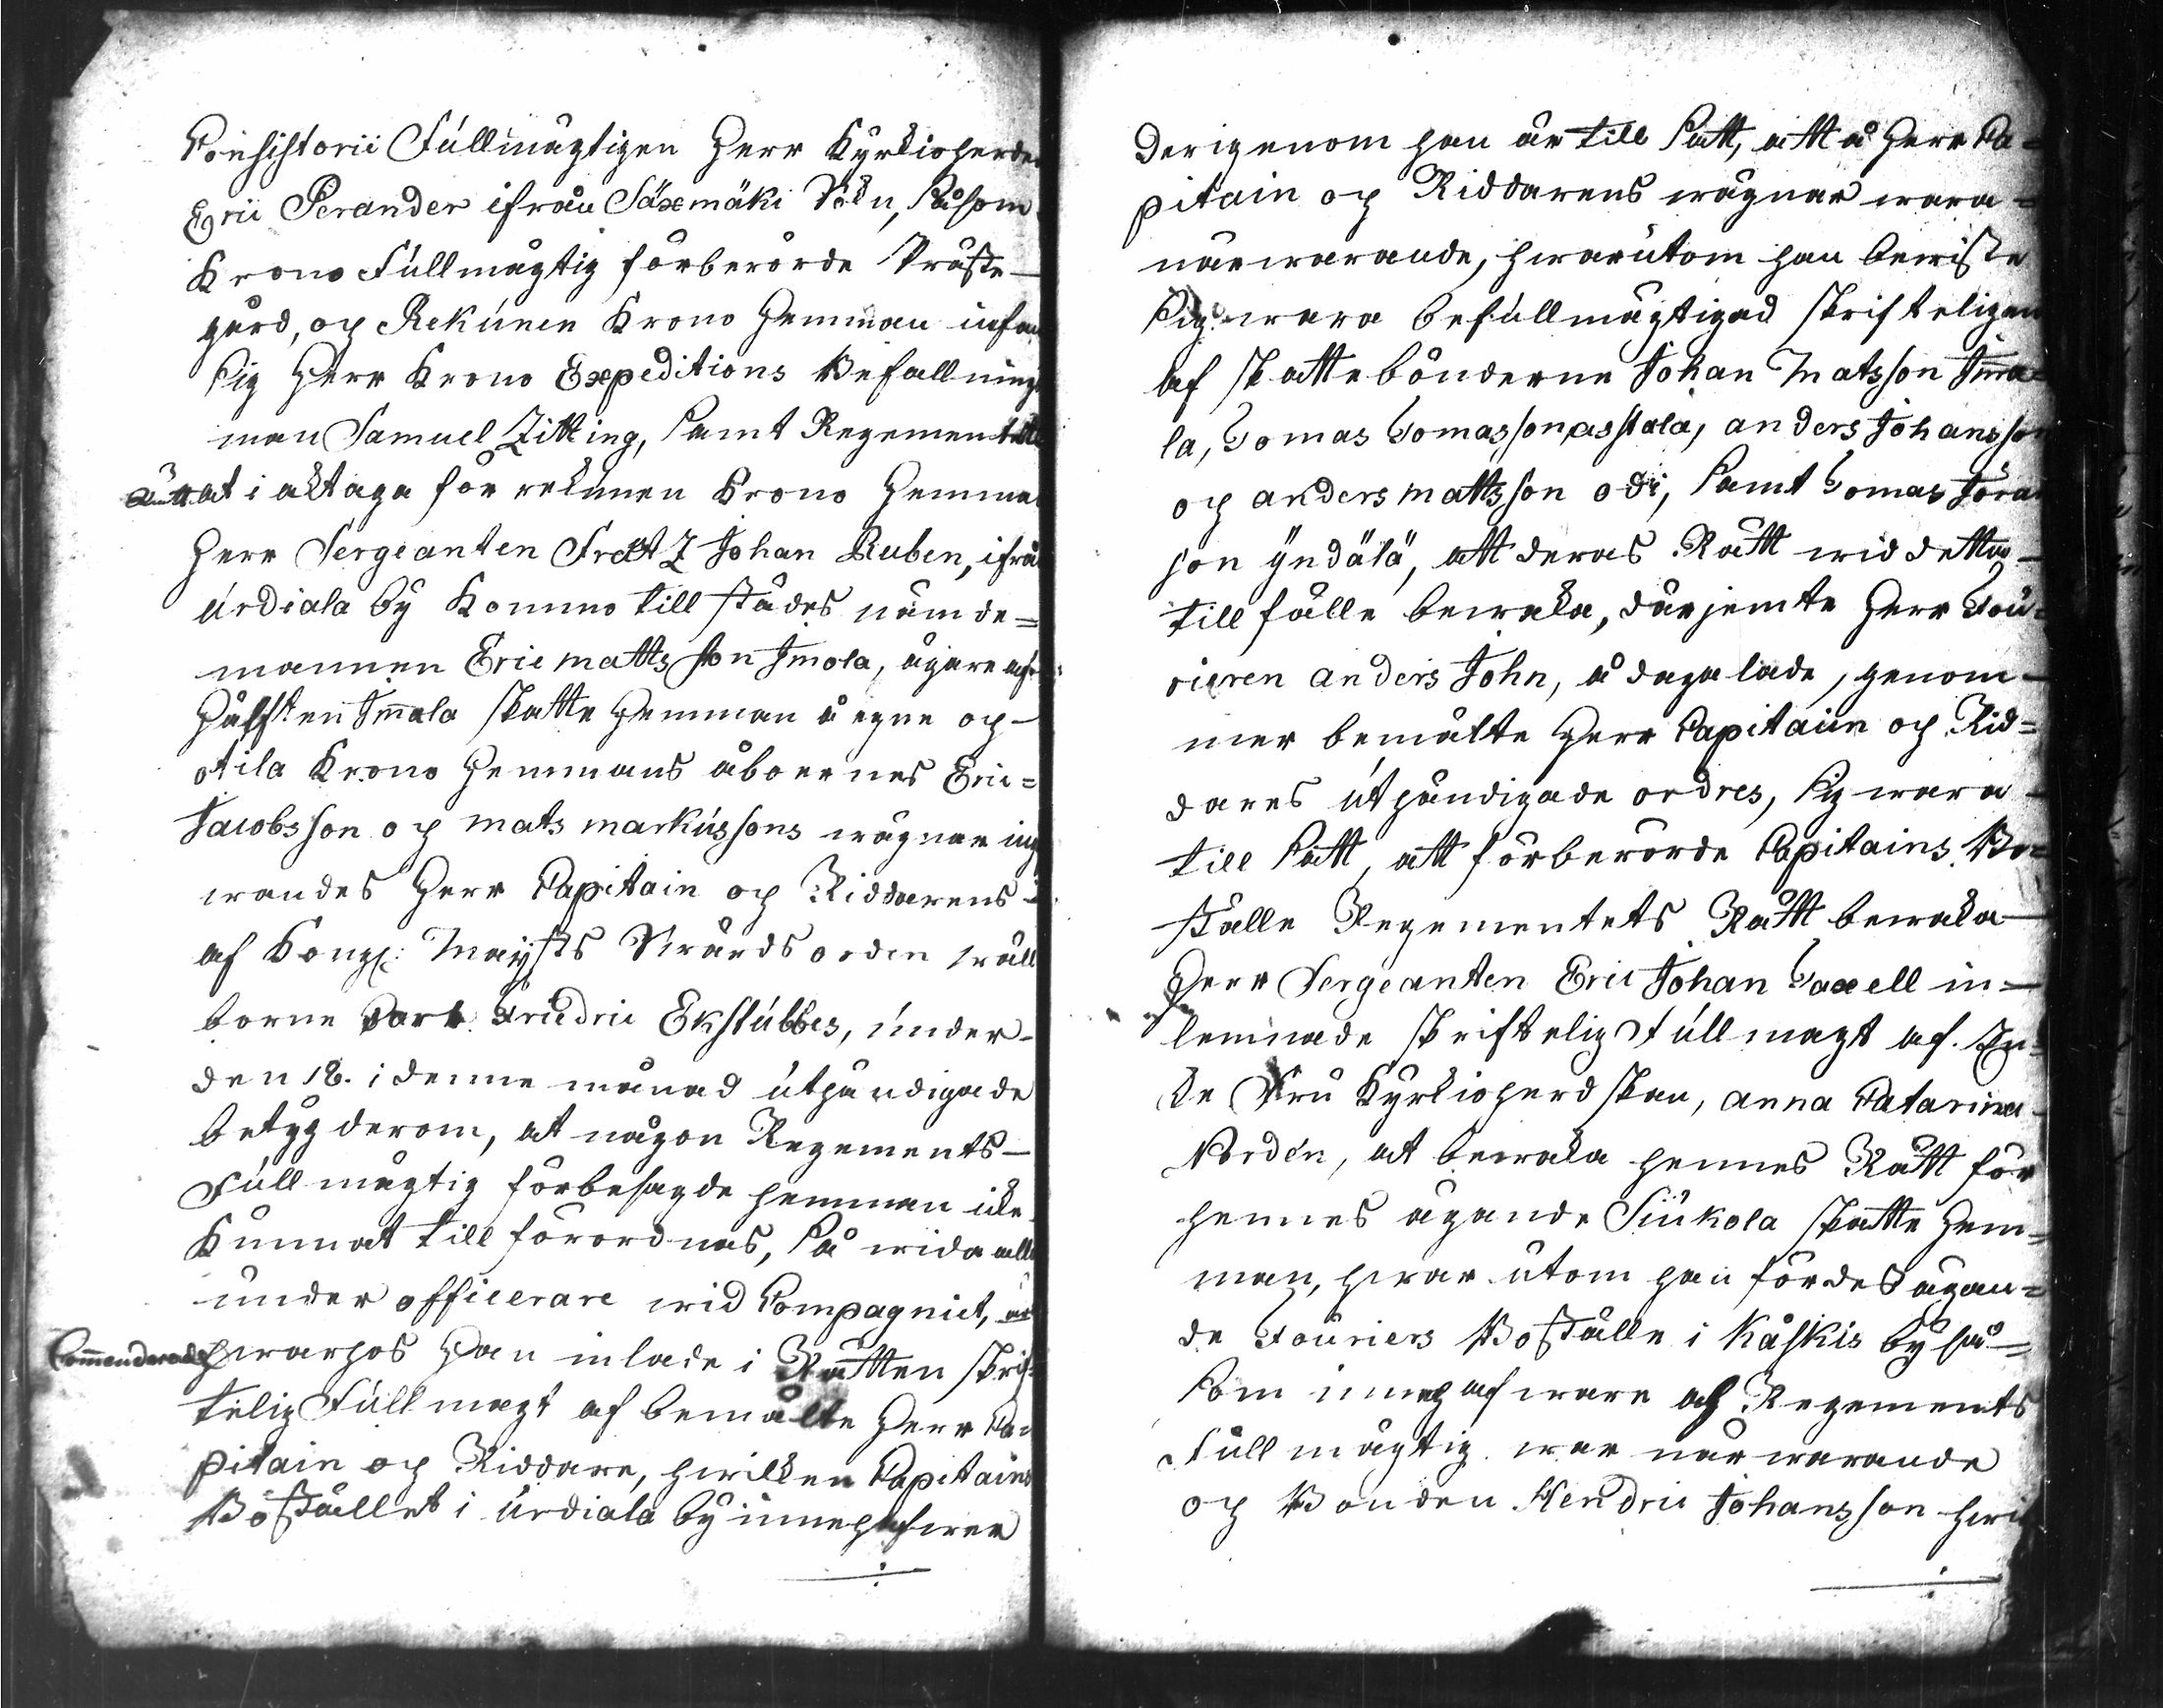 Consistorii Fullmägtigen Herr Kyrkioherden
Eric Perander ifrån Säxmäki Sokn, Såsom
Krono Fullmägtig förberörde Präste-
gård, och Rekunen Krono Hemman infan
Sig Herr Krono Expeditions Befallnings
man Samuel Zitting, Samt Regementets
Rätt at i aktaga för rekunen Krono Hemman
Herr Sergeanten Johan Ruben, ifrån
Urdiala by Kommo till städes nämde=
mannen Eric Mattsson Immola, ägare af
Hälften Immala Skatte Hemman å egne och
Otila Krono Hemmans åboernes Eric=
Jacobsson och Mats Markussons wägnar ing
wandes Herr Capitain och Riddarens
af Kongl: Mayjts Swärds orden wäll
borne Carl Friedric Ekstubbes, under-
den 18. i denne månad uthändigade
betyg derom, at någon Regements-
Fullmägtig förbesagde hemman icke
Kunnat till förordnas, Så wida alle
under officerare wid Compagniet, är
Commenderade hwarhos Han inlade i Rätten skrif-
telig Fullmagt af bemälte Herr Ca=
pitain och Riddare, hwilken Capitains
Boställes i Urdiala by innehafwer
Derigenom han är till Satt, att å Herr Ca=
pitain och Riddarens wägnar wara=
närwarande, hwarutom han bewiste
Sig wara befullmägtigad skrifteligen
af skattebönderne Johan Matsson Imma=
la, Tomas Tomasson Asstala, Anders Johansson
och Anders Mattsson Odi, Samt Tomas Jöran
son Yndälä, att deras Rätt wid detta-
till fälle bewaka, därjemte Herr Fou=
rieren Anders John, å daga lade, genom-
mer bemälte Herr Capitain och Rid=
dares uthändigade ordres, Sig wara-
till Satt, att förberörde Capitains Bo=
ställe Regementets Rätt bewaka-
Herr Sergeanten Eric Johan Taxell in=
lemnade skriftelig Fullmagt af En=
ke Fru Kyrkioherdskan, Anna Catarina
Nordén, at bewaka hennes Rätt för
hennes ägande Siukola skatte Hem=
man, hwar utom han fördes ägan=
de Fouriers Boställe i Kåskis by så=
som innehafware af Regements
Fullmägtig war närwarande
och Bonden Hendric Johansson hwil